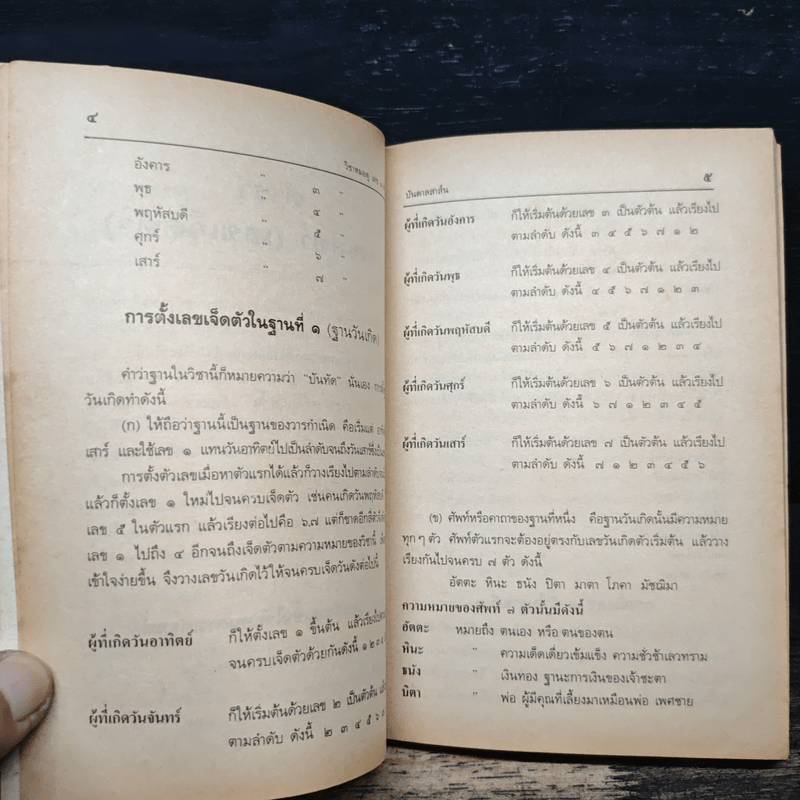 ๔
วิชาหมอดู เลข
อังคาร " ๓ "
พุธ " ๔ "
พฤหัสบดี " ๕ "
ศุกร์ " ๖ "
เสาร์ " ๗ "
การตั้งเลขเจ็ดตัวในฐานที่ ๑ (ฐานวันเกิด)
คำว่าฐานในวิชานี้ก็หมายความว่า "บันทัด" นั่นเอง
วันเกิดทำดังนี้
(ก) ให้ถือว่าฐานนี้เป็นฐานของวารกำเนิด คือเริ่มแต่
เสาร์ และใช้เลข ๑ แทนวันอาทิตย์ไปเป็นลำดับจนถึงวันเสาร์ซึ่งเป็น
การตั้งตัวเลขเมื่อหาตัวแรกได้แล้วก็วางเรียงไปตามลำดับ
แล้วก็ตั้งเลข ๑ ใหม่ไปจนครบเจ็ดตัว เช่นคนเกิดวันพฤหัสบดี
เลข ๕ ในตัวแรก แล้วเรียงต่อไปคือ ๖,๗ แต่ก็ขาดอีกสี่ตัว
เลข ๑ ไปถึง ๔ อีกจนถึงเจ็ดตัวตามความหมายของวิชานี้
เข้าใจง่ายขึ้น จึงวางเลขวันเกิดไว้ให้จนครบเจ็ดวันดังต่อไปนี้
ผู้ที่เกิดวันอาทิตย์ ก็ให้ตั้งเลข ๑ ขึ้นต้น แล้วเรียงไป
จนครบเจ็ดตัวด้วยกันดังนี้ ๑ ๒ ๓
ผู้ที่เกิดวันจันทร์ ก็ให้เริ่มต้นด้วยเลข ๒ เป็นตัวต้น
ตามลำดับ ดังนี้ ๒ ๓ ๔ ๕ ๖
บันดาลสาส์น ๕
ผู้ที่เกิดวันอังคาร ก็ให้เริ่มต้นด้วยเลข ๓ เป็นตัวต้น แล้วเรียงไป
ตามลำดับ ดังนี้ ๓ ๔ ๕ ๖ ๗ ๑ ๒
ผู้ที่เกิดวันพุธ ก็ให้เริ่มต้นด้วยเลข ๔ เป็นตัวต้น แล้วเรียงไป
ตามลำดับ ดังนี้ ๔ ๕ ๖ ๗ ๑ ๒ ๓
ผู้ที่เกิดวันพฤหัสบดี ก็ให้เริ่มต้นด้วยเลข ๕ เป็นตัวต้น แล้วเรียงไป
ตามลำดับ ดังนี้ ๕ ๖ ๗ ๑ ๒ ๓ ๔
ผู้ที่เกิดวันศุกร์ ก็ให้เริ่มต้นด้วยเลข ๖ เป็นตัวต้น แล้วเรียงไป
ตามลำดับ ดังนี้ ๖ ๗ ๑ ๒ ๓ ๔ ๕
ผู้ที่เกิดวันเสาร์ ก็ให้เริ่มต้นด้วยเลข ๗ เป็นตัวต้น แล้วเรียงไป
ตามลำดับ ดังนี้ ๗ ๑ ๒ ๓ ๔ ๕ ๖
(ข) ศัพท์หรือคาถาของฐานที่หนึ่ง คือฐานวันเกิดนั้นมีความหมาย
ทุกๆ ตัว ศัพท์ตัวแรกจะต้องอยู่ตรงกับเลขวันเกิดตัวเริ่มต้น แล้ววาง
เรียงกันไปจนครบ ๗ ตัว ดังนี้
อัตตะ หินะ ธนัง ปิตา มาตา โภคา มัชฌิมา
ความหมายของศัพท์ ๗ ตัวนั้นมีดังนี้
อัตตะ หมายถึง ตนเอง หรือ ตนของตน
หินะ " ความเด็ดเดี่ยวเข้มแข็ง ความชั่วช้าเลวทราม
ธนัง " เงินทอง ฐานะการเงินของเจ้าชะตา
บิตา " พ่อ ผู้มีคุณที่เลี้ยงมาเหมือนพ่อ เพศชาย